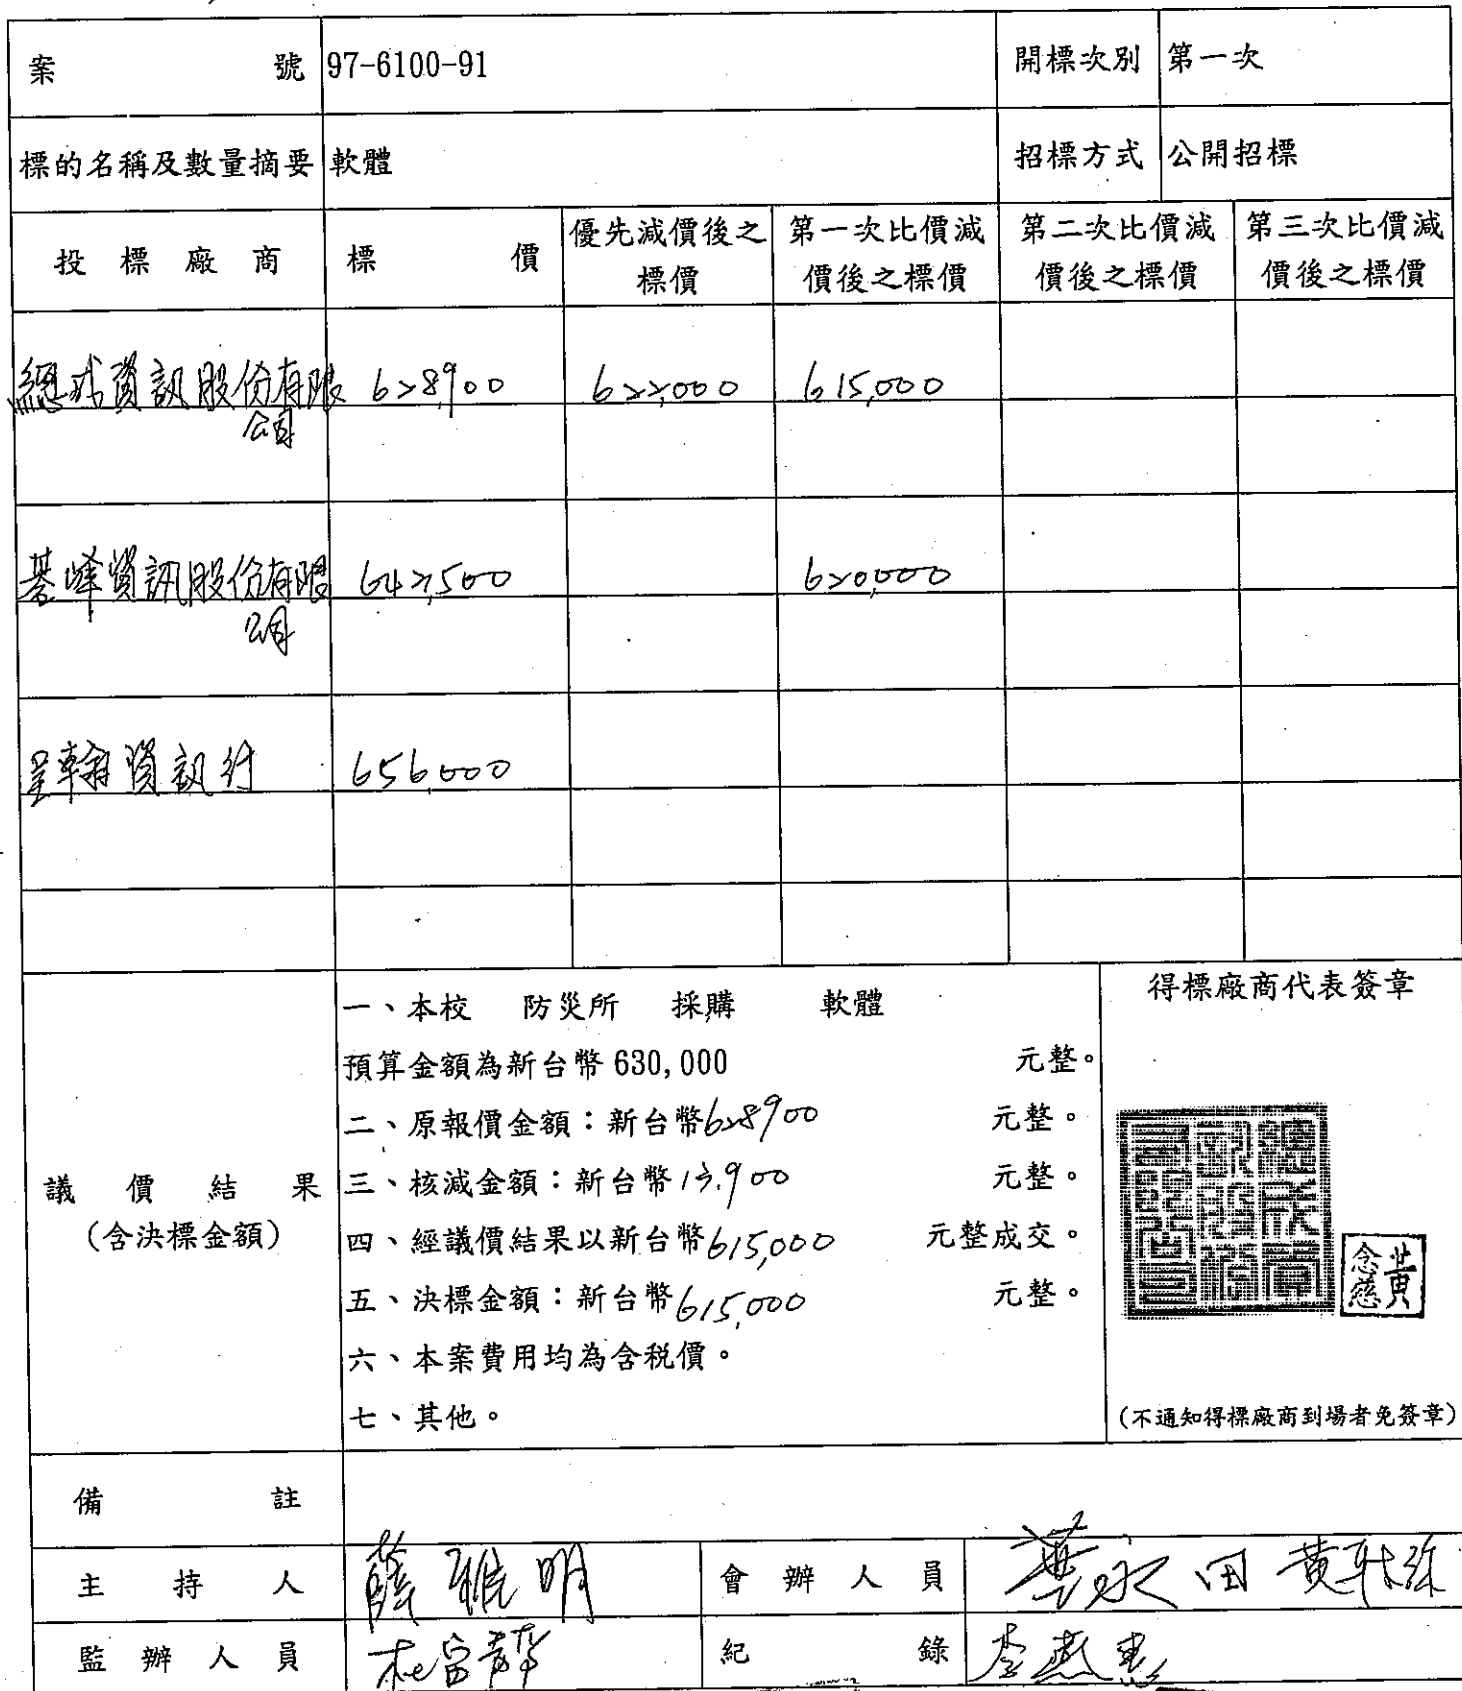 案 號 97-6100-91 開標次別 第一次
標的名稱及數量摘要 軟體 招標方式 公開招標
投標廠商 標 價 優先減價後之標價 第一次比價減價後之標價 第二次比價減價後之標價 第三次比價減價後之標價
資訊股份有限公司 628,900 622,000 615,000
峰資訊股份有限公司 642,500 620,000
呈翰資訊行 656,000
議價結果
(含決標金額)
一、本校 防災所 採購 軟體
預算金額為新台幣 630,000 元整。
二、原報價金額：新台幣628900 元整。
三、核減金額：新台幣13,900 元整。
四、經議價結果以新台幣615,000 元整成交。
五、決標金額：新台幣615,000 元整。
六、本案費用均為含稅價。
七、其他。
得標廠商代表簽章
黃念慈
(不通知得標廠商到場者免簽章)
備 註
主持人 薛雅明 會辦人員 葉永田
監辦人員 紀 錄